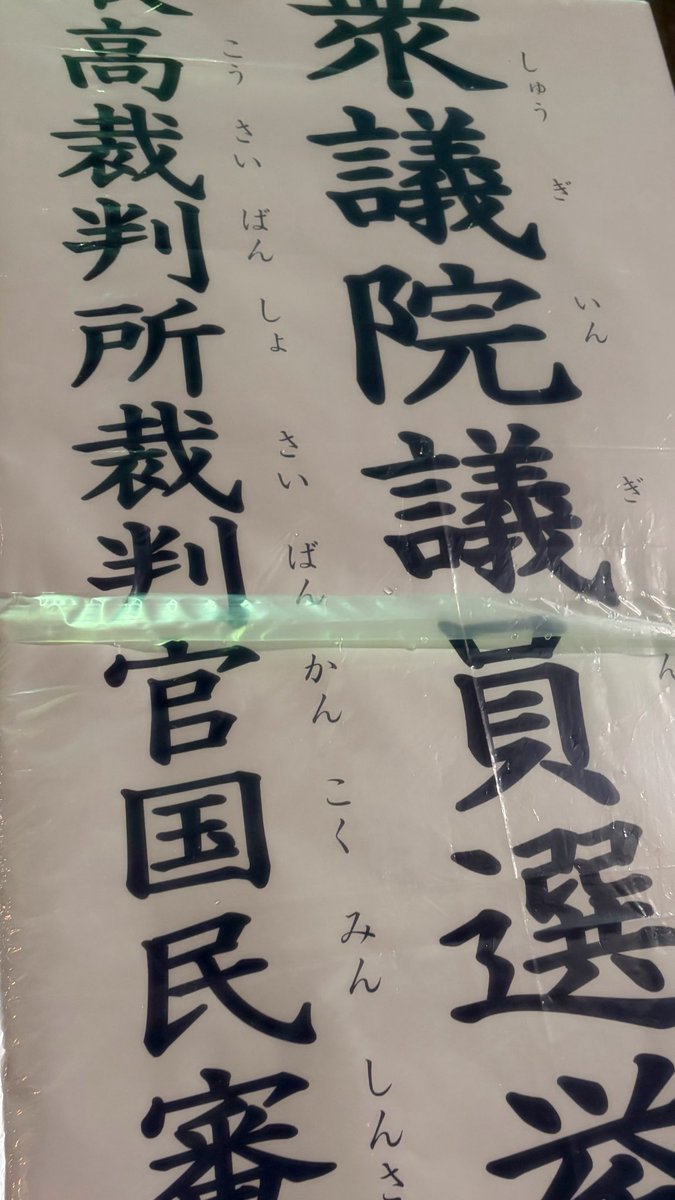 衆議院議員選挙
しゅう ぎ いん ぎ ん
高裁判所裁判官国民審
こう さい ばん しょ さい ばん かん こく みん しんさ